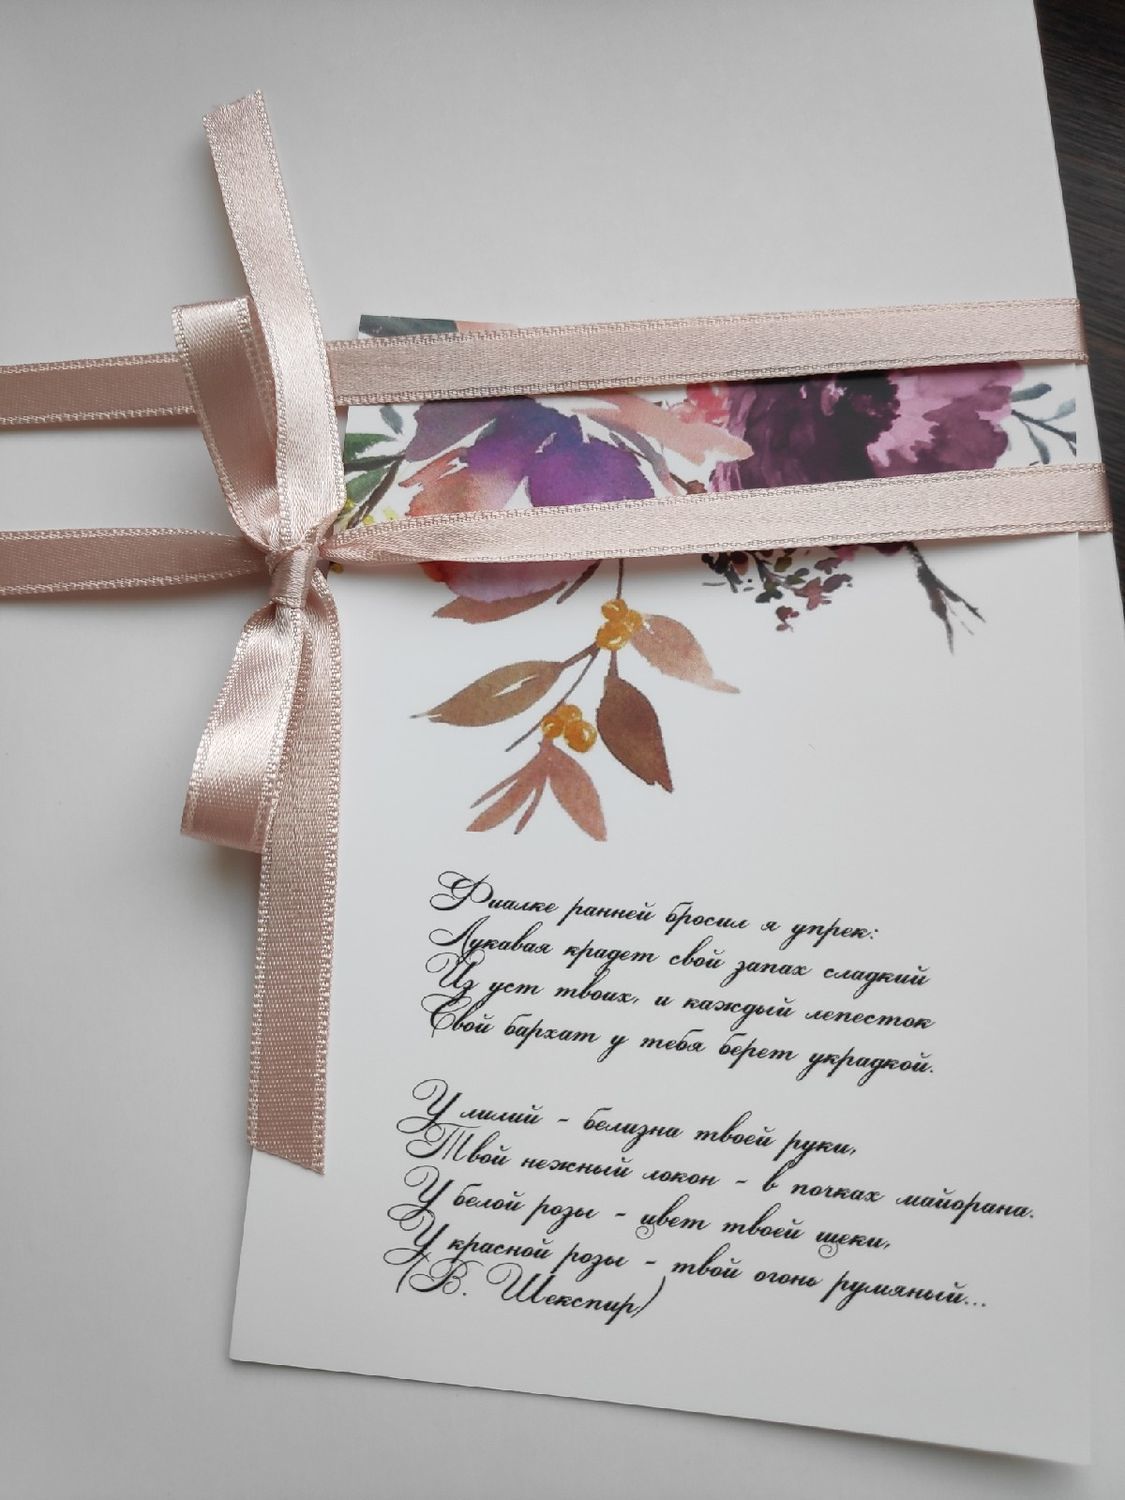 Фиалке ранней бросил я упрек:
Лукавая крадет свой запах сладкий
Из уст твоих, и каждый лепесток
Свой бархат у тебя берет украдкой.
У лилий - белизна твоей руки,
Твой нежный локон - в почках майорана.
У белой розы - цвет твоей щеки,
У красной розы - твой огонь румяный...
(В. Шекспир)